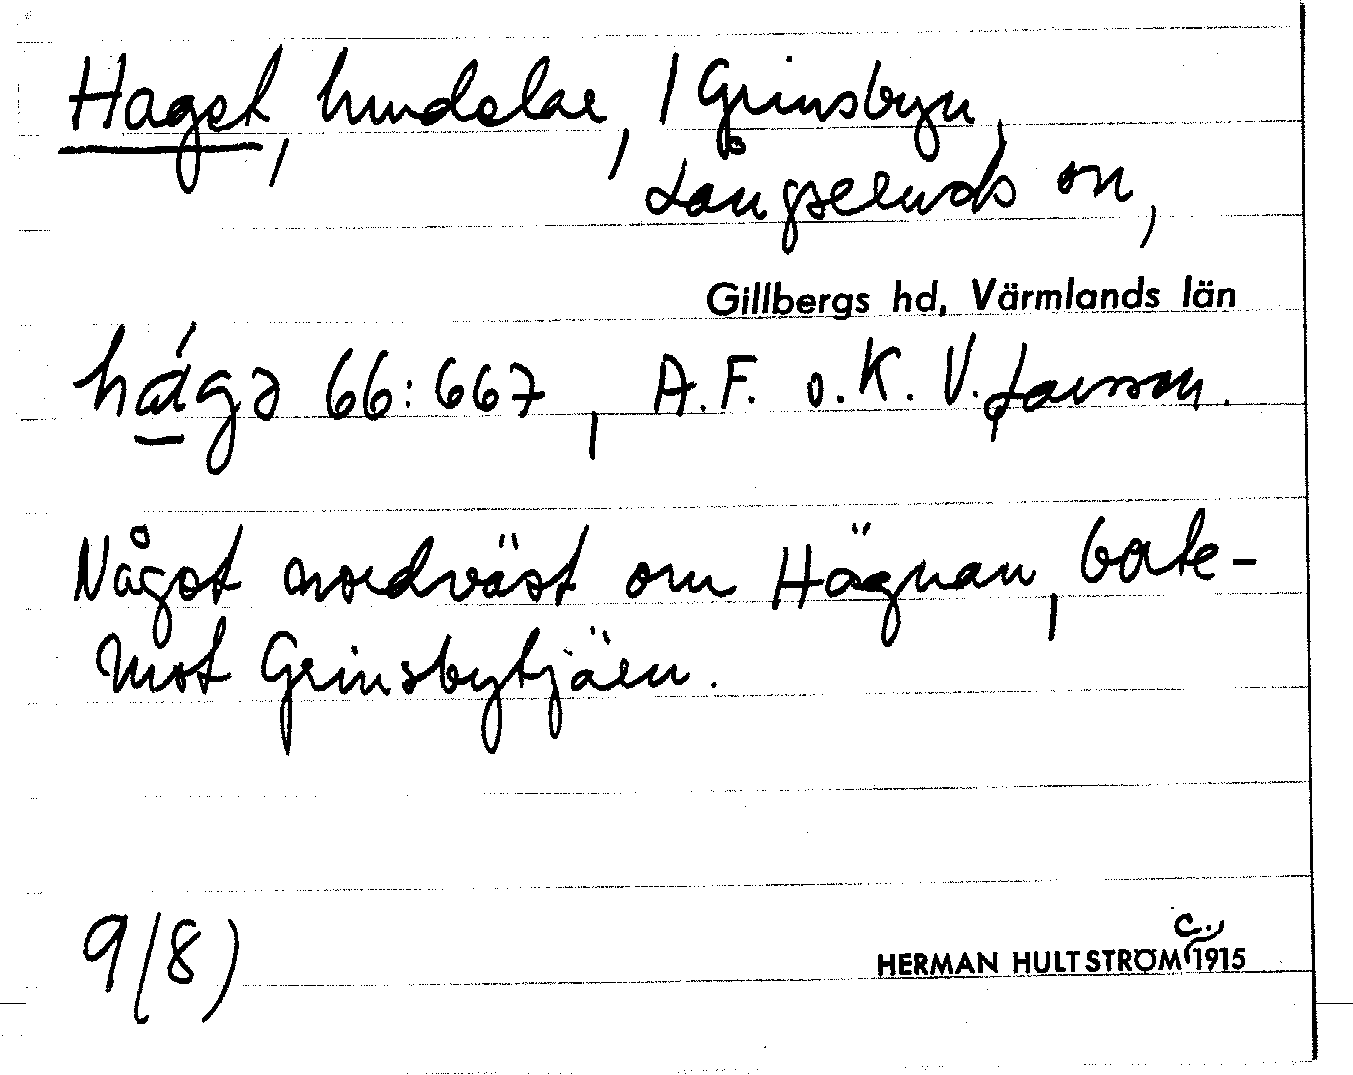 Haget, hmdelar, / Grinsbyn,
Långseruds sn,
Gillbergs hd, Värmlands län
hágə 66:667, A.F. o. K. V. Larsson.
Något nordväst om Hägnan, borte-
mot Grinsbytjärn.
9/8)
c.,
HERMAN HULTSTRÖM 1915